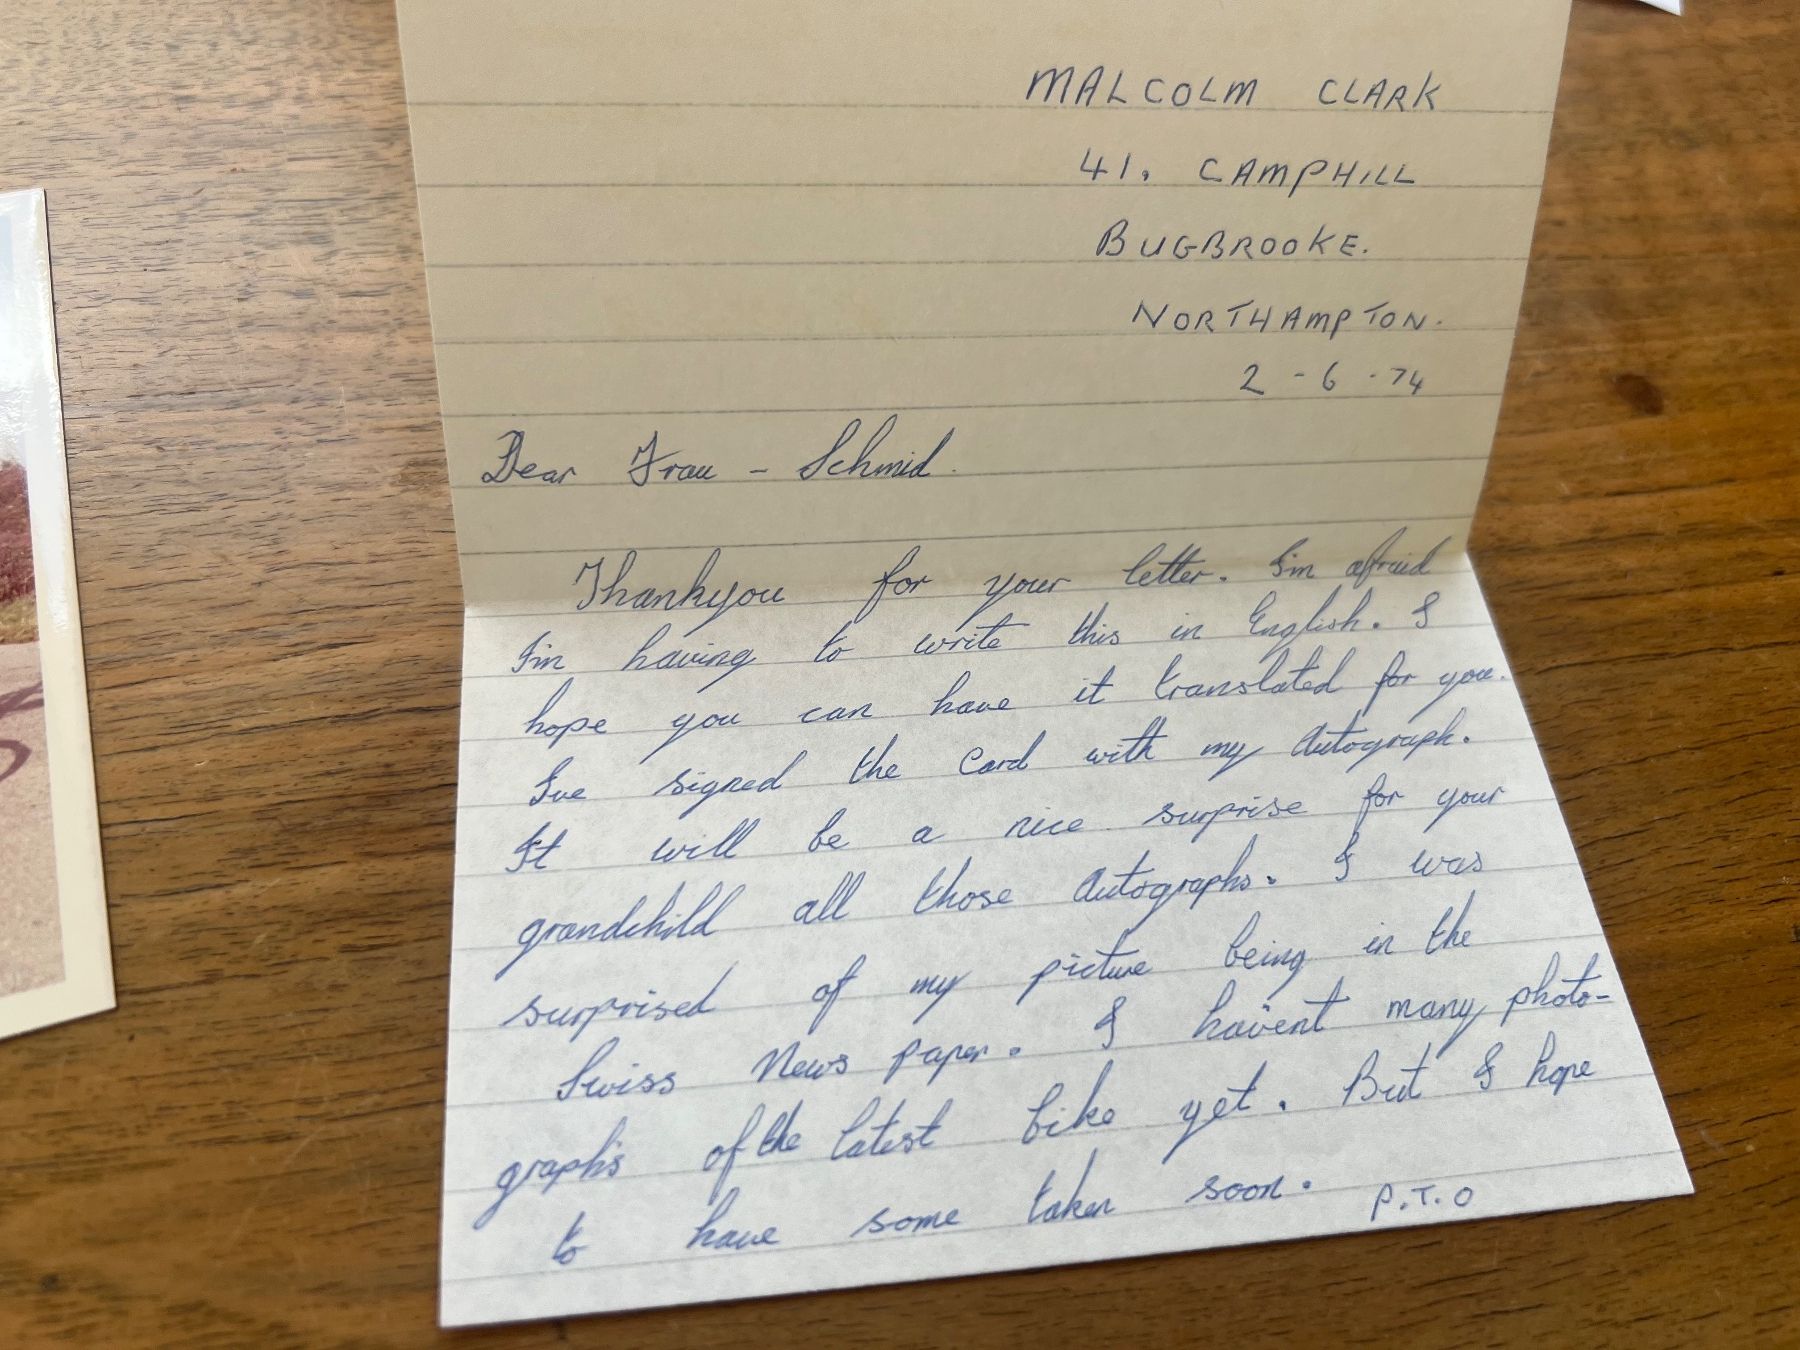 MALCOLM CLARK
41. CAMPHILL
BUGBROOKE.
NORTHAMPTON.
2-6-74
Dear Frau - Schmid.
Thankyou for your letter. I'm afraid
I'm having to write this in English. I
hope you can have it translated for you.
I've signed the Card with my Autograph.
It will be a nice surprise for your
grandchild all those Autographs. I was
surprised of my picture being in the
Swiss News paper. I haven't many photo-
graphs of the latest bike yet. But I hope
to have some taken soon. P.T.O